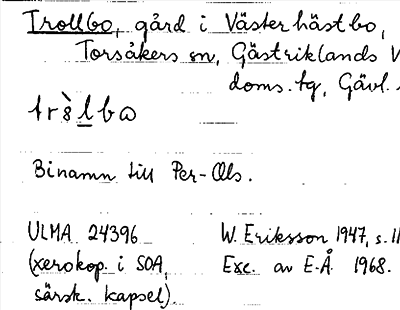 Trollbo, gård i Västerhästbo,
Torsåkers sn, Gästriklands V
doms. tg, Gävl.
Binamn till Per-Ols.
ULMA 24396 W. Eriksson 1947, s. 11
(xerokop. i SOA, Exc. av E-Å 1968.
särsk. kapsel).